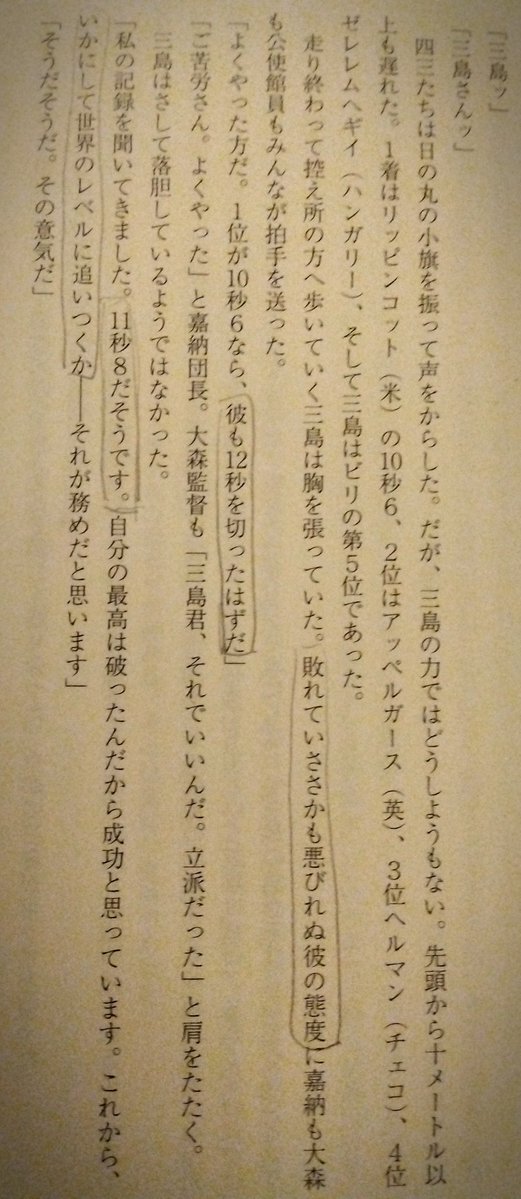 「三島ッ」
「三島さんッ」
四三たちは日の丸の小旗を振って声をからした。だが、三島の力ではどうしようもない。先頭から十メートル以
上も遅れた。1着はリッピンコット（米）の10秒6、2位はアッペルガース（英）、3位ヘルマン（チェコ）、4位
ゼレレムヘギイ（ハンガリー）、そして三島はビリの第5位であった。
走り終わって控え所の方へ歩いていく三島は胸を張っていた。敗れていささかも悪びれぬ彼の態度に嘉納も大森
も公使館員もみんなが拍手を送った。
「よくやった方だ。1位が10秒6なら、彼も12秒を切ったはずだ」
「ご苦労さん。よくやった」と嘉納団長。大森監督も「三島君、それでいいんだ。立派だった」と肩をたたく。
三島はさして落胆しているようではなかった。
「私の記録を聞いてきました。11秒8だそうです。自分の最高は破ったんだから成功と思っています。これから、
いかにして世界のレベルに追いつくか――それが務めだと思います」
「そうだそうだ。その意気だ」